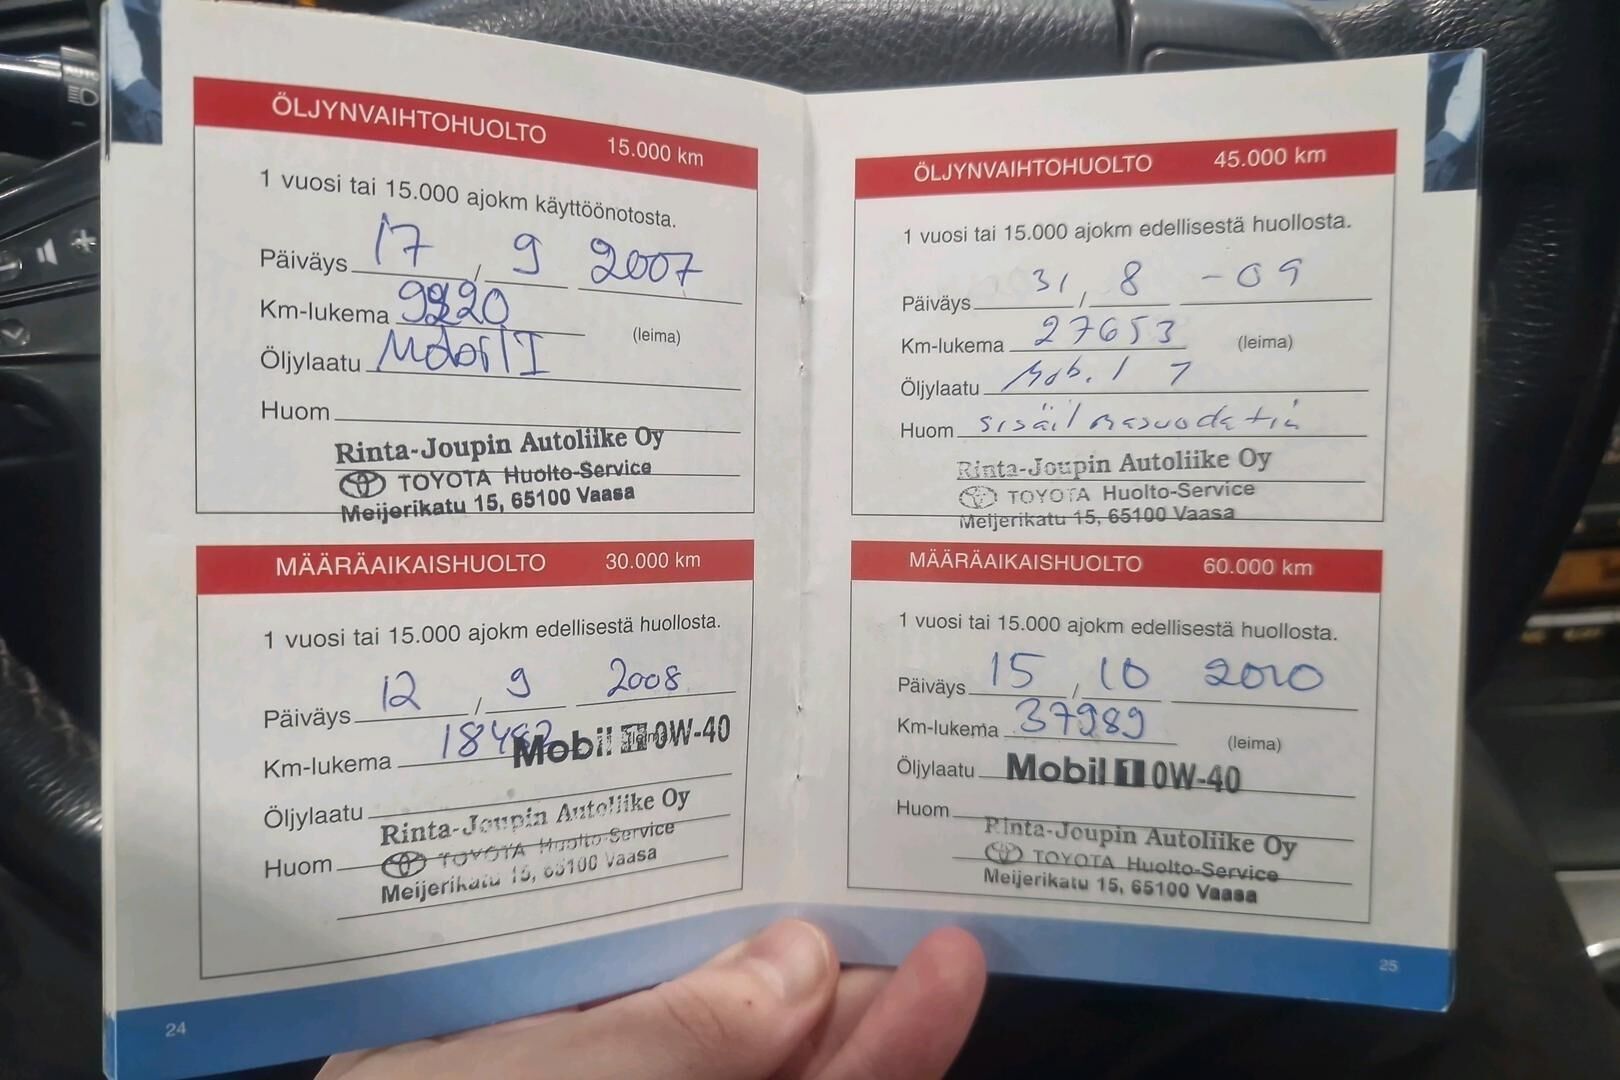 ÖLJYNVAIHTOHUOLTO 15.000 km
1 vuosi tai 15.000 ajokm käyttöönotosta.
Päiväys 17 / 9 2007
Km-lukema
(leima)
Öljylaatu Mobil 1
Huom
Rinta-Joupin Autoliike Oy
TOYOTA Huolto-Service
Meijerikatu 15, 65100 Vaasa
MÄÄRÄAIKAISHUOLTO 30.000 km
1 vuosi tai 15.000 ajokm edellisestä huollosta.
Päiväys 12 / 9 2008
Km-lukema
Mobil 1 0W-40
Öljylaatu
Rinta-Joupin Autoliike Oy
Huom
TOYOTA Huolto-Service
Meijerikatu 15, 65100 Vaasa
24
ÖLJYNVAIHTOHUOLTO 45.000 km
1 vuosi tai 15.000 ajokm edellisestä huollosta.
Päiväys 31 / 8 -09
Km-lukema 27653 (leima)
Öljylaatu Mobil 1
Huom sisäilmasuodatin
Rinta-Joupin Autoliike Oy
TOYOTA Huolto-Service
Meijerikatu 15, 65100 Vaasa
MÄÄRÄAIKAISHUOLTO 60.000 km
1 vuosi tai 15.000 ajokm edellisestä huollosta.
Päiväys 15 / 10 2010
Km-lukema 37989
(leima)
Öljylaatu Mobil 1 0W-40
Huom
Rinta-Joupin Autoliike Oy
TOYOTA Huolto-Service
Meijerikatu 15, 65100 Vaasa
25